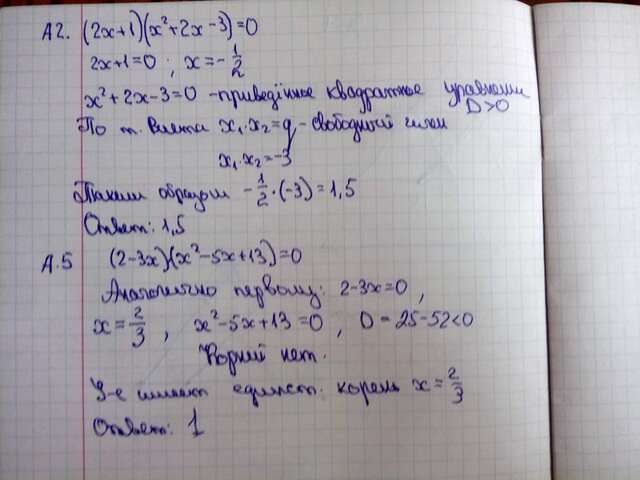 А2. (2x+1)(x²+2x-3)=0
2x+1=0 ; x=-1/2
x²+2x-3=0 -приведённое квадратное уравнение
D>0
По т. Виета x₁·x₂=q - свободный член
x₁·x₂=-3
Таким образом -1/2·(-3)=1,5
Ответ: 1,5
А.5 (2-3x)(x²-5x+13)=0
Аналогично первому: 2-3x=0 ,
x=2/3 , x²-5x+13=0 , D=25-52<0
Корней нет.
У-е имеет единст. корень x=2/3
Ответ: 1